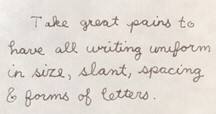 Take great pains to
have all writing uniform
in size, slant, spacing
& forms of letters.